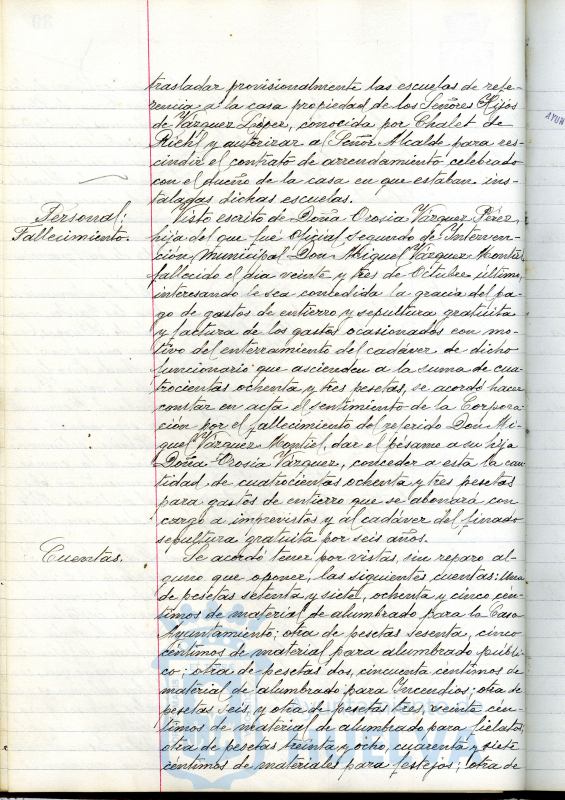 trasladar provisionalmente las escuelas de refe-
rencia a la casa propiedad de los Señores Hijos
de Vázquez López, conocida por Chalet de
Richt y autorizar al Señor Alcalde para res-
cindir el contrato de arrendamiento celebrado
con el dueño de la casa en que estaban ins-
taladas dichas escuelas.
Personal:
Fallecimiento.
Visto escrito de Doña Orosia Vázquez Pérez,
hija del que fué Oficial segundo de Interven-
ción Municipal Don Miguel Vázquez Montiel,
fallecido el dia veinte y tres de Octubre último,
interesando le sea concedida la gracia del pa-
go de gastos de entierro y sepultura gratuita
y factura de los gastos ocasionados con mo-
tivo del enterramiento del cadáver de dicho
funcionario que ascienden a la suma de cua-
trocientas ochenta y tres pesetas, se acordó hacer
constar en acta el sentimiento de la Corpora-
ción por el fallecimiento del referido Don Mi-
guel Vázquez Montiel, dar el pésame a su hija
Doña Orosia Vázquez, conceder a esta la can-
tidad de cuatrocientas ochenta y tres pesetas
para gastos de entierro que se abonará con
cargo a imprevistos y al cadáver del finado
sepultura gratuita por seis años.
Cuentas.
Se acordó tener por vistas, sin reparo al-
guno que oponer, las siguientes cuentas: Una
de pesetas setenta y siete, ochenta y cinco cén-
timos de material de alumbrado para la Casa
Ayuntamiento; otra de pesetas sesenta, cinco
céntimos de material para alumbrado públi-
co; otra de pesetas dos, cincuenta céntimos de
material de alumbrado para Incendios; otra de
pesetas seis, y otra de pesetas tres, veinte cén-
timos de material de alumbrado para
otra de pesetas treinta y ocho, cuarenta y siete
céntimos de materiales para festejos; otra de